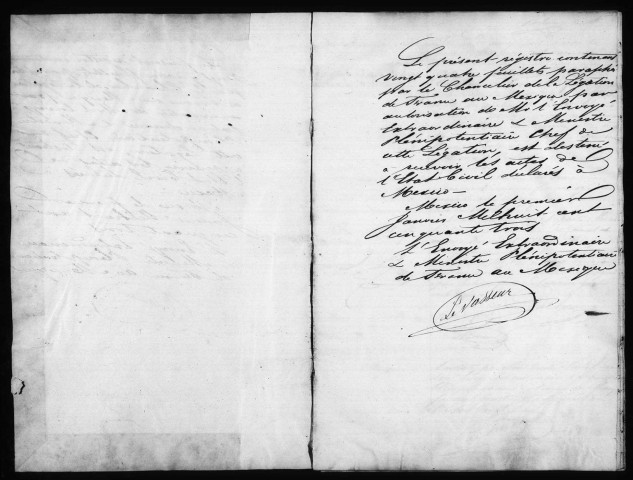 Le présent régistre contenant
vingt quatre feuillets paraphés
par le Chancelier de la Légation
de France au Mexique par
autorisation de Mr l'Envoyé
Extraordinaire & Ministre
Plénipotentiaire Chef de
cette Légation, est destiné
à recevoir les actes de
l'Etat Civil déclarés à
Mexico—
Mexico le premier
Janvier Mil huit cent
cinquante trois
L'Envoyé Extraordinaire
& Ministre Plénipotentiaire
de France au Mexique
Levasseur